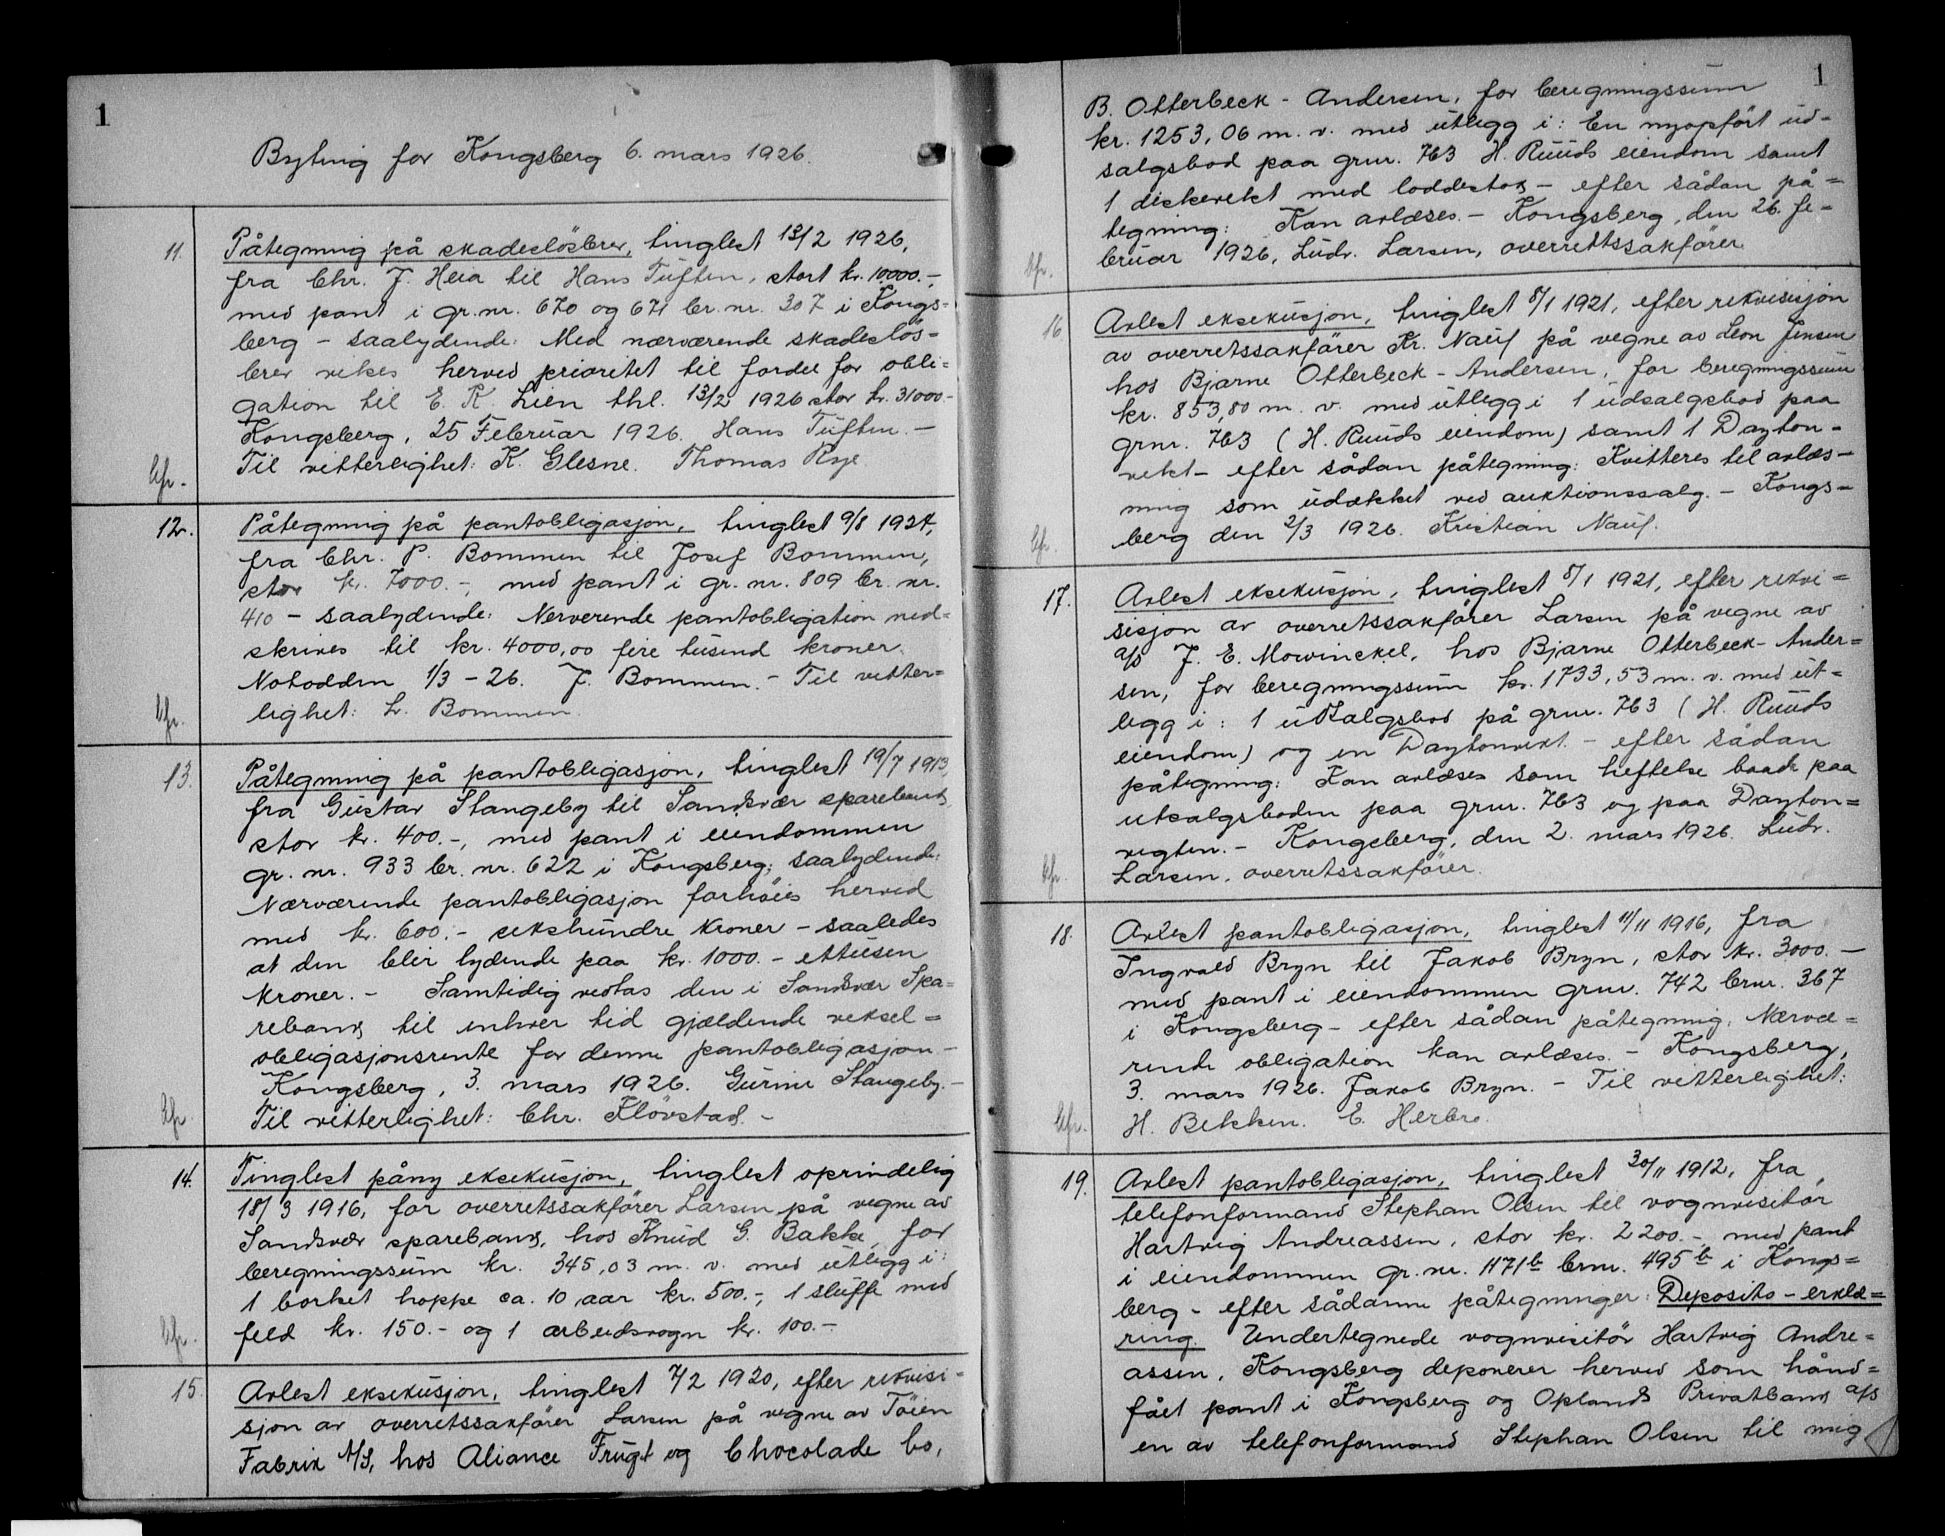 1
Byting for Kongsberg 6. mars 1926.
11. Påtegning på skadeslösbrev, tinglest 13/2 1926,
fra Chr. J. Heia til Hans Tuften, stort kr. 10000.-,
med pant i gr. nr. 670 og 671 br. nr. 307 i Kongs=
berg - saalydende: Med nærværende skadeslös-
brev vikes herved prioritet til fordel for obli=
gation til E. K. Lien thl. 13/2 1926 stor kr. 31000-
Kongsberg, 25 Februar 1926. Hans Tuften. -
Til vitterlighet: K. Glesne. Thomas Rye
12. Påtegning på pantobligasjon, tinglest 9/8 1924,
fra Chr. P. Bommen til Josef Bommen,
stor kr. 7000.-, med pant i gr. nr. 809 br. nr.
410 - saalydende: Nerverende pantobligation ned=
skrives til kr. 4000,00 fire tusind kroner.
Notodden 1/3 - 26. J. Bommen. - Til vitter=
lighet: L. Bommen.
13. Påtegning på pantobligasjon, tinglest 19/7 1913,
fra Gustav Stangeby til Sandsvær sparebank,
stor kr. 400.-, med pant i eiendommen
gr. nr. 933 br. nr. 622 i Kongsberg; saalydende:
Nærværende pantobligasjon forhöies herved
med kr. 600.- sekshundre kroner - saaledes
at den blir lydende paa kr. 1000.- ettusen
kroner. - Samtidig vedtas den i Sandsvær Spa=
rebank til enhver tid gjældende veksel=
obligasjonsrente for denne pantobligasjon -
Kongsberg, 3. mars 1926. Gurine Stangeby. -
Til vitterlighet: Chr. Flövstad. -
14. Tinglest påny eksekusjon, tinglest oprindelig
18/3 1916, for overretssakförer Larsen på vegne av
Sandsvær sparebank, hos Knud G. Bakke, for
beregningssum kr. 345,03 m. v. med utlegg i:
1 borket hoppe ca. 10 aar kr. 500.-, 1 sluffe med
feld kr. 150.- og 1 arbeidsvogn kr. 100.-
15. Avlest eksekusjon, tinglest 7/2 1920, efter rekvisi-
sjon av overretssakförer Larsen på vegne av Töien
Fabrik A/S, hos Aliance Frugt og Chocolade Co,
1
B. Otterbeck - Andersen, for beregningssum
kr. 1253,06 m. v. med utlegg i: En nyopfört ud-
salgsbod paa grnr. 763 H. Ruuds eiendom samt
1 diskevekt med loddestok - efter sådan på=
tegning: Kan avlæses. - Kongsberg, den 26. fe-
bruar 1926, Ludv. Larsen, overrettssakförer.
16. Avlest eksekusjon, tinglest 8/1 1921, efter rekvisisjon
av overretssakförer Kr. Nauf på vegne av Leon Jensen
hos Bjarne Otterbeck - Andersen, for beregningssum
kr. 853,80 m. v. med utlegg i 1 udsalgsbod paa
grnr. 763 (H. Ruuds eiendom) samt 1 Dayton-
vekt - efter sådan påtegning: Kvitteres til avlæs-
ning som udækket ved auktionssalg. - Kongs-
berg den 2/3 1926. Kristian Nauf.
17. Avlest eksekusjon, tinglest 8/1 1921, efter rekvi=
sisjon av overretssakförer Larsen på vegne av
a/s J. E. Mowinckel, hos Bjarne Otterbeck-Ander=
sen, for beregningssum kr. 1733,53 m. v. med ut=
legg i: 1 utsalgsbod på grnr. 763 (H. Ruuds
eiendom) og en Daytonvekt. - efter sådan
påtegning: Kan avlæses som heftelse baade paa
utsalgsboden paa grnr. 763 og paa Dayton=
vegten. - Kongsberg, den 2. mars 1926. Ludv.
Larsen, overretssakförer.
18. Avlest pantobligasjon, tinglest 11/11 1916, fra
Ingvald Bryn til Jakob Bryn, stor kr. 3000. -
med pant i eiendommen grnr. 742 brnr. 367
i Kongsberg - efter sådan påtegning: Nærvæ=
rende obligation kan avlæses. - Kongsberg,
3. mars 1926. Jakob Bryn. - Til vitterlighet:
H. Bekken. E. Herbro.
19. Avlest pantobligasjon, tinglest 30/11 1912, fra
telefonformand Stephan Olsen til vognvisitör
Hartvig Andreassen, stor kr. 2200.- med pant
i eiendommen gr. nr. 1171b brnr. 495b i Kongs=
berg - efter sådanne påtegninger: Deposito-erklæ=
ring. Undertegnede vognvisitör Hartvig Andre=
assen, Kongsberg deponerer herved som hånd=
fået pant i Kongsberg og Oplands Privatbank a/s
en av telefonformand Stephan Olsen til mig